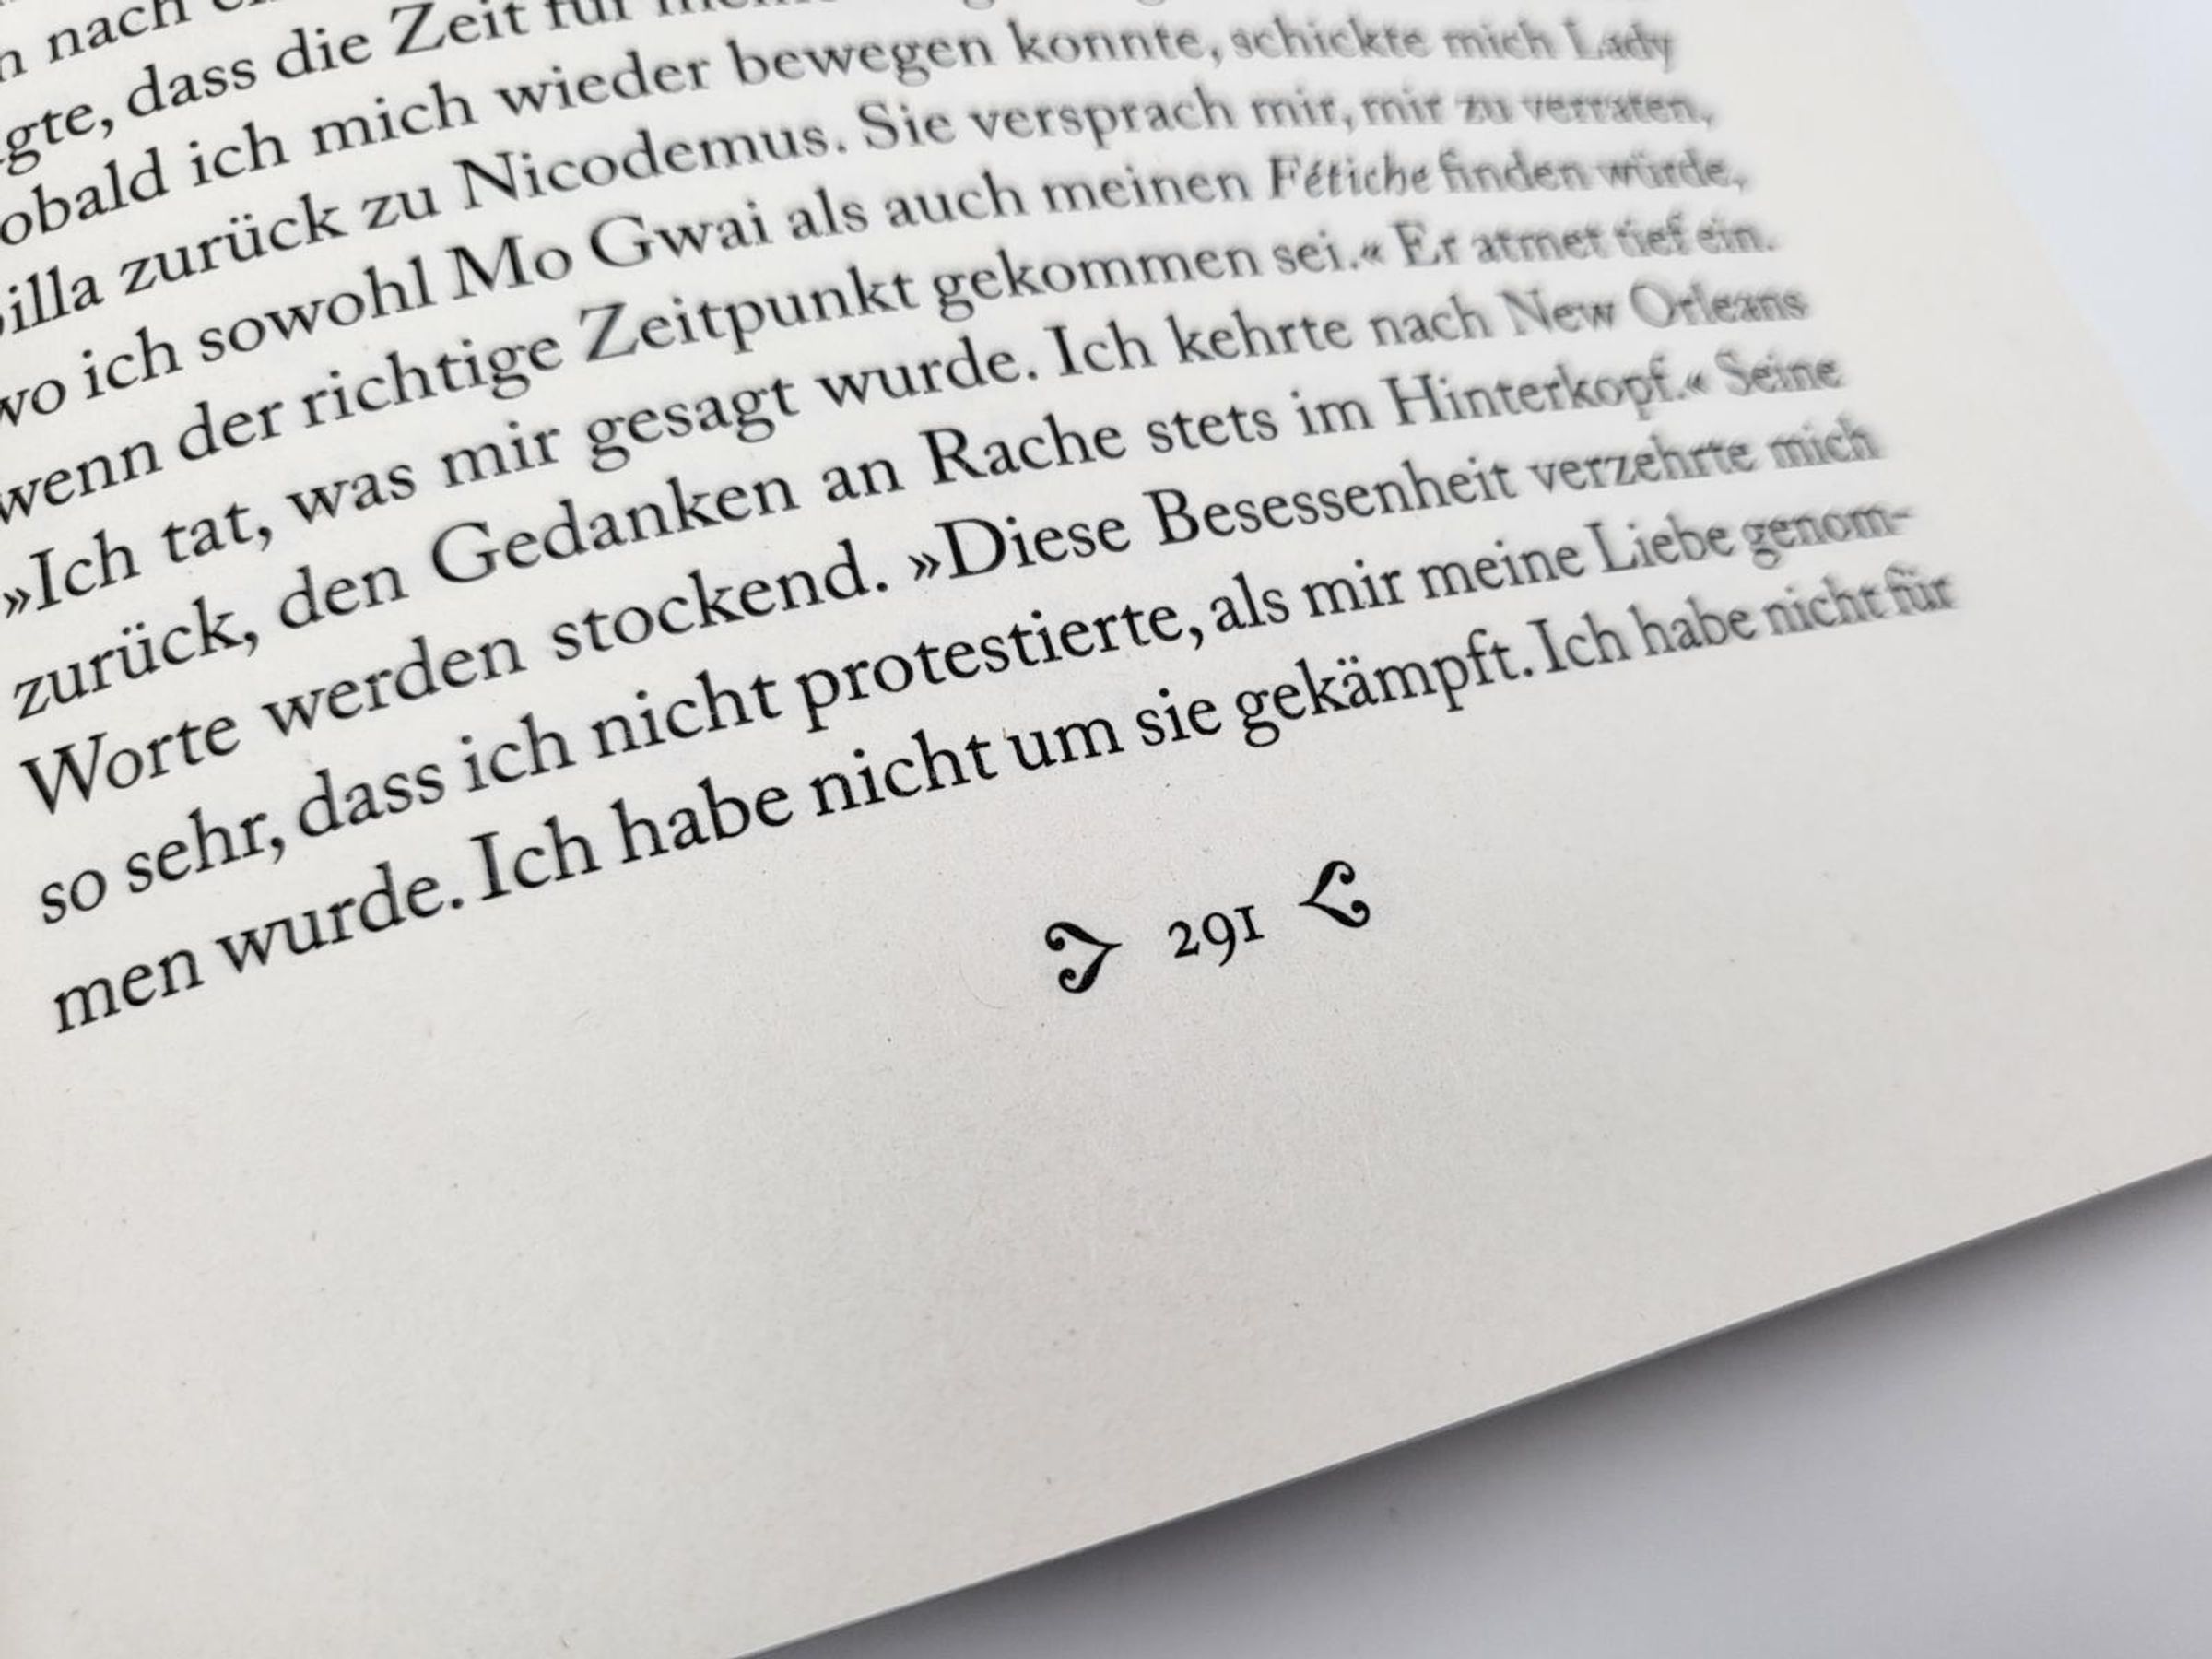 nach
gte, dass die Zeit für
obald ich mich wieder bewegen konnte, schickte mich Lady
illa zurück zu Nicodemus. Sie versprach mir, mir zu verraten,
wo ich sowohl Mo Gwai als auch meinen Fétiche finden würde,
wenn der richtige Zeitpunkt gekommen sei.« Er atmet tief ein.
»Ich tat, was mir gesagt wurde. Ich kehrte nach New Orleans
zurück, den Gedanken an Rache stets im Hinterkopf.« Seine
Worte werden stockend. »Diese Besessenheit verzehrte mich
so sehr, dass ich nicht protestierte, als mir meine Liebe genom-
men wurde. Ich habe nicht um sie gekämpft. Ich habe nicht für
291